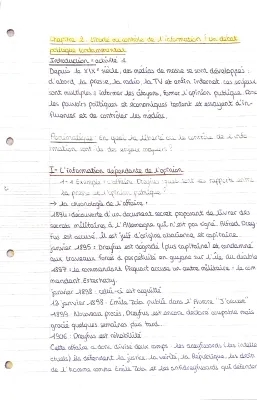 Chapitre 2. Liberté ou contrôle de l'information : un débat
politique fondamental
Introduction - activité 1
Depuis le XIXe siècle, les médias de masse se sont développés :
d'abord la presse, la radio, la TV et enfin Internet. Les enjeux
sont multiples : informer les citoyens, former l'opinion publique. Donc
les pouvoirs politiques et économiques tentent et essayent d'in-
fluencer et de contrôler les médias.
Problématique : En quoi la liberté ou le contrôle de l'info
mation sont de des enjeux majeurs :
I - L'information dépendante de l'opinion
1-1 Exemple : Dreyfus : quels sont les rapports entre
la presse et l'opinion publique
→ La chronologie de l'affaire :
1894 : découverte d'un document secret proposant de livrer des
secrets militaires à l'Allemagne qui n'est pas signé. Alfred Drey-
fus est accusé. Il est juif d'origine alsacienne et capitaine.
janvier 1895 : Dreyfus est dégradé (plus capitaine) et condamné
aux travaux forcés à perpétuité en guyane sur l'île du diable
1897 : le commandant Picquart accuse un autre militaire : le com
mandant Esterhazy.
janvier 1898 : celui-ci est acquitté
13 janvier 1898 : Emile Zola publie dans l'Aurore "J'accuse"
1899 : Nouveau procès, Dreyfus est encore déclaré coupable mais
gracié quelques semaines plus tard.
1906 : Dreyfus est réhabilité
Cette affaire a donc divisé deux camps : les dreyfusards (les intelle
ctuels) ils défendent la justice, la vérité, la République, les droits
de l'homme comme Emile Zola et les antidreyfusards qui défendent